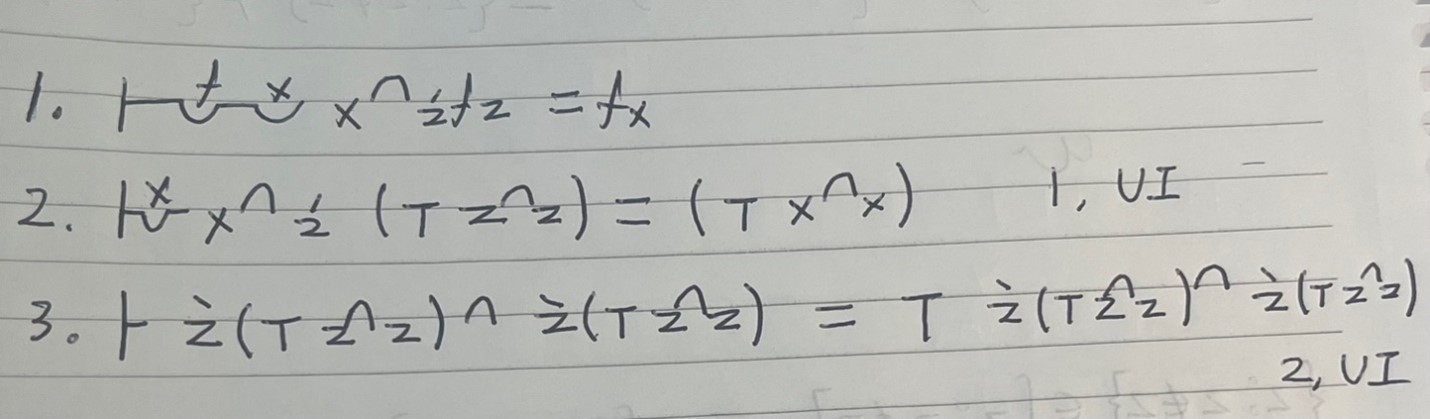 1. ⊢ f x x⌒ żfz = fx
2. ⊢ x x⌒ ż (⊤ z⌒z) = (⊤ x⌒x) 1, UI
3. ⊢ ż(⊤ z⌒z)⌒ ż(⊤ z⌒z) = ⊤ ż(⊤ z⌒z)⌒ ż(⊤ z⌒z)
2, UI